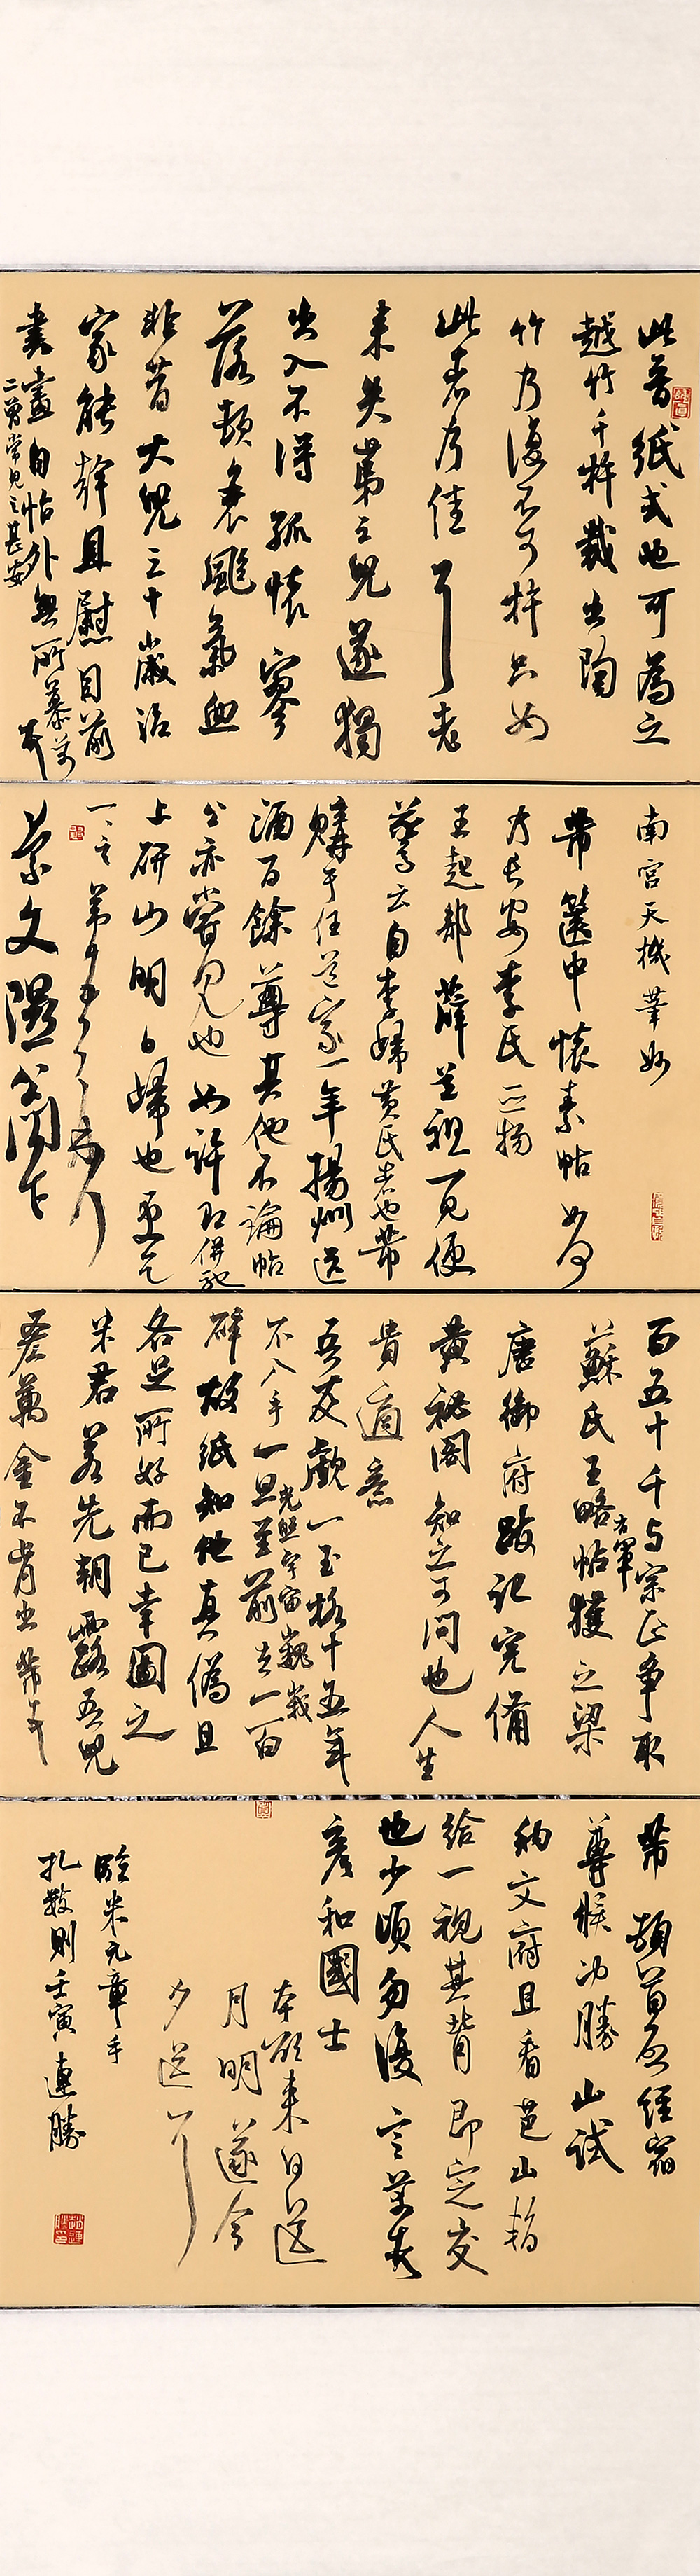 此晋纸式也可為之
越竹千杵裁出陶
竹乃復不可杵只如
此者乃佳耳老
来失第三兒遂獨
出入不得孤懷寥
落頓衰飈氣血
非昔大兒三十歲治
家能幹且慰目前
書畫自怡外無所慕芾
二曾常見之甚安
南宫天機筆妙
芾篋中懷素帖如何
乃長安李氏之物
王起部薛道祖一見便
驚云自李歸黄氏者也芾
購于任道家一年揚州送
酒百餘尊其他不論帖
公亦嘗見也如許即併馳
上研山明日歸也更乞
一言芾頓首再拜
景文隰公閣下
百五十千与宗正争取
蘇氏王略帖獲之梁
右軍
唐御府跋記完備
黄祕閣知之可問也人生
貴適意
吾友覷一玉格十五年
不入手一旦至前去一百
光照宇宙巍峩
碎故紙知他真偽且
各足所好而已幸圖之
米君若先朝露吾兒
吝萬金不肯出芾
芾頓首啓經宿
尊候冲勝山試
納文府且看芭山暫
給一視其背即定交
也少頃勿復言芾
彦和國士
本欲来日送
月明遂今
夕送耳
臨米元章手
扎數則壬寅連勝